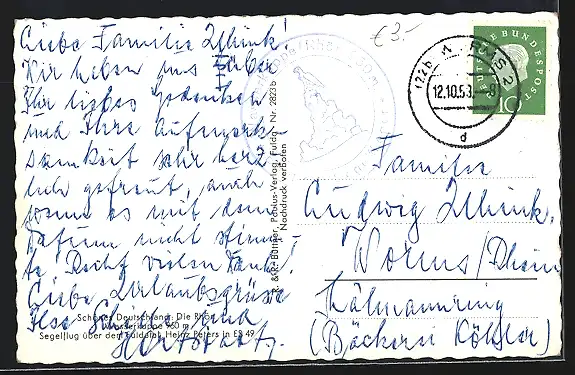 Liebe Familie Whink!
Wir haben uns über
Ihr liebes Gedenken
und Ihre Aufmerk-
samkeit sehr herz-
lich gefreut, auch
wenn es mit dem
Datum nicht stimm-
te. Recht vielen Dank!
Liebe Urlaubsgrüsse
Ilse
Schönes Deutschland: Die Rhön
Wasserkuppe 950 m
Segelflug über dem Fuldatal, Heinz Peters in ES 49
R. & R. Büttner, Pablus-Verlag, Fulda - Nr. 2823b
Nachdruck verboten
€3.-
(22b)
12.10.59.-8
d
DEUTSCHE BUNDESPOST
10
Familie
Ludwig Whink,
Worms/Rhein
(Bäckerei Köhler)